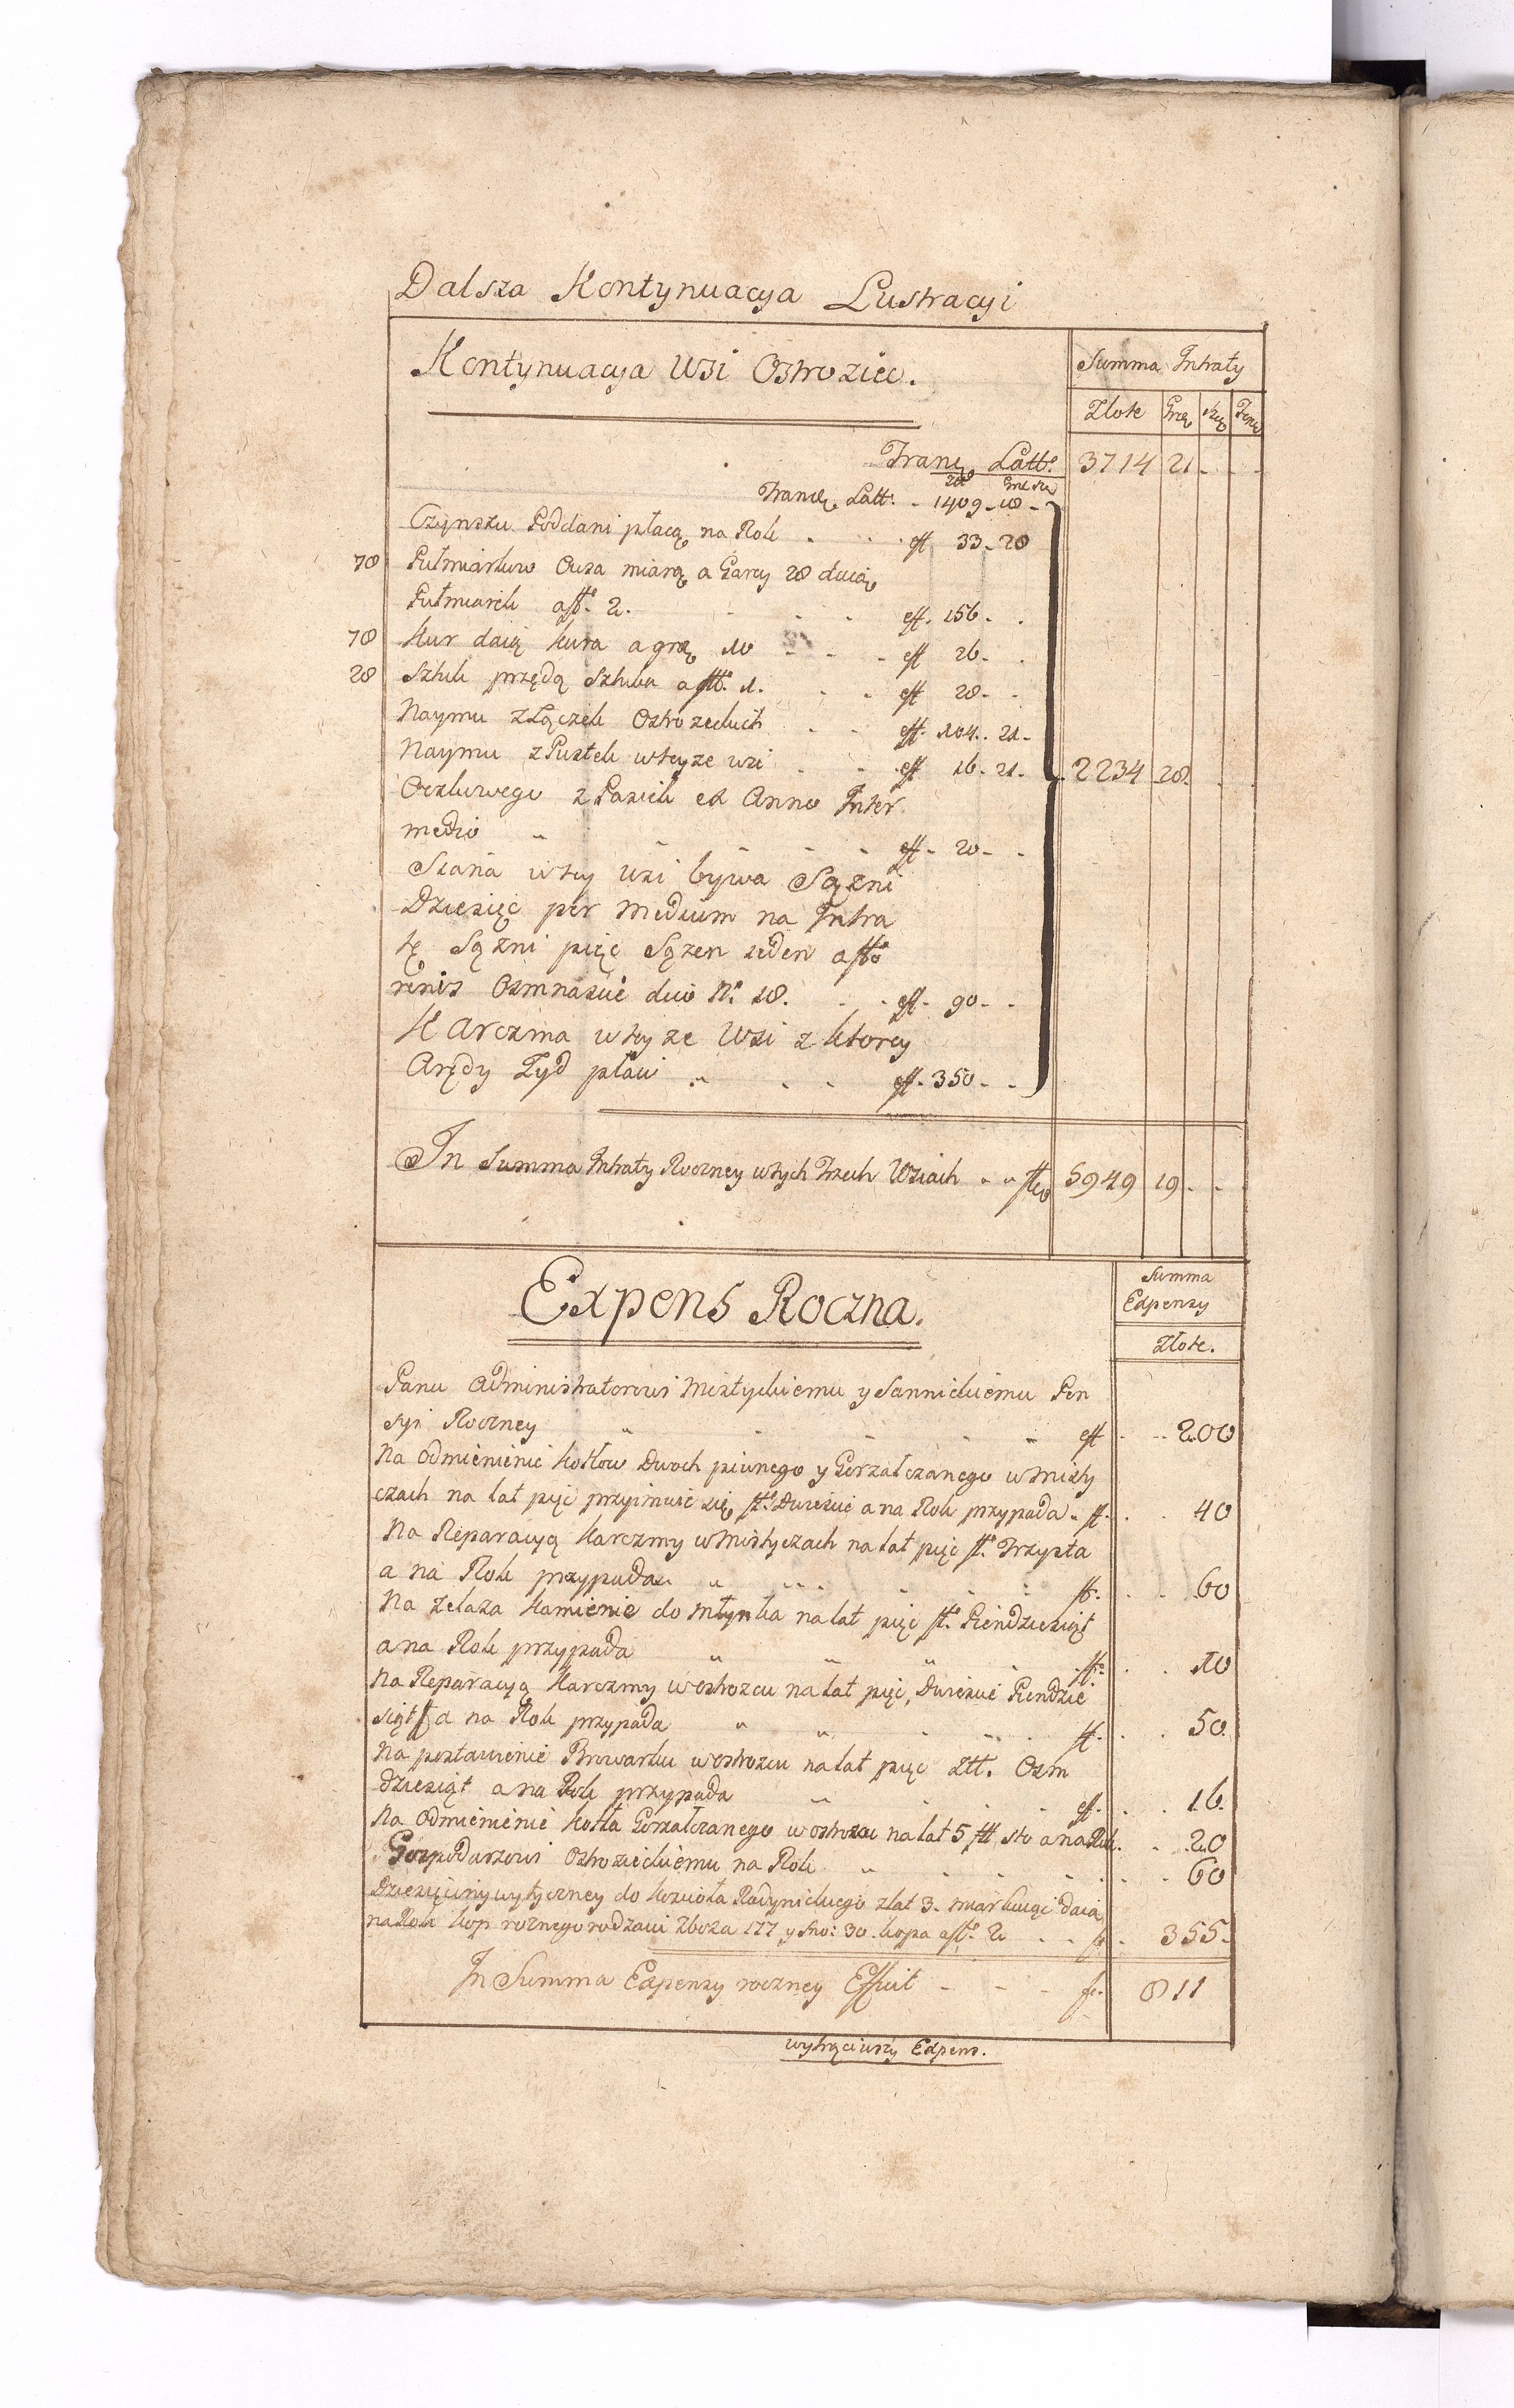 Dalsza Kontynuacya Lustracyi
Kontynuacya Wsi Ostroziec.
Summa Intraty
Złote Grzę Szeg Feng
Transp Latt. 3714 21 - -
Transp. Latt. - 1409 - 18 -
Czynszu Poddani płacą na Rok . . . ff 33 - 28
78 Pułmiarkow Owsa miarą a Garcy 28 daią
Pułmiarek a ff. 2. - - - ff. 156 - -
78 Kur daią kura a grę 10 - - - ff 26 - -
28 Sztuk przędą Sztuka a ff. 1. - - ff 28 - -
Naymu z Łączek Ostrozeckich - - ff. 104 - 21 -
Naymu z Pustek wteyze wsi - - ff 16 - 21 - 2234 28
Oczkowego z Pasiek ex Anno Inter
medio - - - - - ff - 20 - -
Siana wtey Wsi bywa Sązni
Dziesięć per Medium na Intra
tę Sązni pięć Sązen ieden a ff
renis Osmnascie duo No 18. - - ff - 90 - -
Karczma wteyze Wsi z ktorey
Arędy Zyd płaci - - - ff - 350 - -
In Summa Intraty Roczney wtych Trzech Wsiach - - ff 5949 19 - -
Expens Roczna.
Summa
Expensy
Złote.
Panu Administratorowi Mistyckiemu y Sannickiemu Pen
syi Roczney - - - - - ff - - 200
Na odmienienie kotłow Dwoch piwnego y Gorzałczanego w Misty
czach na lat pięć przyimuie się ff. Dwiescie a na Rok przypada - ff. - - 40
Na Reparacyą Karczmy w Mistyczach na lat pięć ff. Trzysta
a na Rok przypada - - - - - ff. - - 60
Na zelaza kamienie do Młynka na lat pięć ff. Piendziesiąt
a na Rok przypada - - - - - ff. - - 10
Na Reparacyą Karczmy w Ostrozcu na lat pięć, Dwiescie Piendzie
siąt ff a na Rok przypada - - - - ff. - - 50.
Na postawienie Browarku w Ostrozcu na lat pięć Ztt. Osm
dziesiąt a na Rok przypada - - - - ff. - - 16.
Na odmienienie kotła Gorzałczanego w Ostrozcu na lat 5 ff sto a na Rok. - - 20
Gospodarzowi Ostrozieckiemu na Rok - - - - - - 60
Dziesięciny wytyczney do koscioła Radynickiego z lat 3. miarkuiąc daią
na Rok kop roznego rodzaiu zboza 177 y Sno: 30. kopa a ff. 2 - - ff - 355 -
In Summa Expensy roczney Efficit - - - ff. 811
wytrąciwszy Expens.